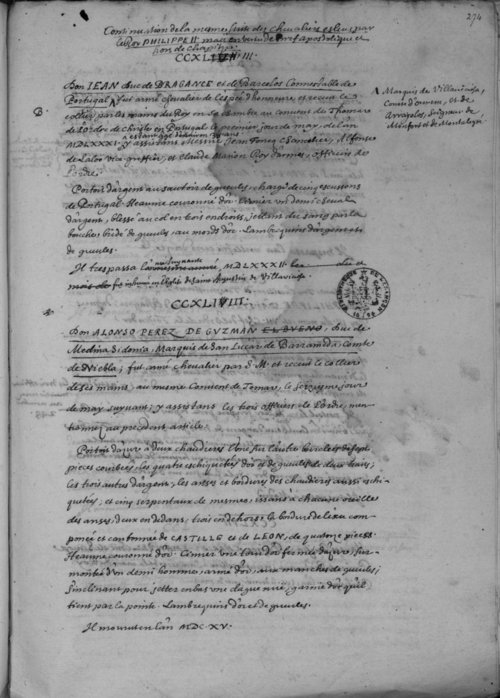 274
Continuation de la mesme suite des chevaliers esleus par
le Roy PHILIPPE II. mais en vertu de Bref apostolique et
hors de chapitre.
CCXLIIII.
Don JEAN duc de BRAGANCE et de Barcelos Connestable de
Portugal, fut armé chevalier de l'esperon d'honneur et receut le
collier, par les mains du Roy en sa chambre au convent de Thomar
de l'ordre de Christe en Portugal le premier jour de may, de l'an
MDLXXXI. y assistans Messire Jean Foncq Chancelier, Alfonse
de Laloo vice greffier, et Claude Marion Roy d'armes, officiers de
l'ordre.
Marquis de Villaviciosa,
Comte d'ourem, et de
Arrayolos, seigneur de
Monfort et de Montalegre
B.
Portoit d'argent au sautoir de gueules, chargé de cinq escussons
de Portugal. Heaume couronné d'or. Cimier un demi cheval
d'argent, blessé au col en trois endroits, jettant du sang par la
bouche; bridé de gueules, au mords d'or. Lambrequins d'argent et
de gueules.
Il trespassa MDLXXXII.
Augustin de Villaviciosa
CCXLIVIII.
Don ALONSO PEREZ DE GUZMAN EL BUENO, Duc de
Medina Sidonia, Marquis de San Lucar de Barrameda, Comte
de Niebla; fut armé chevalier par S. M. et receut le collier
de ses mains, au mesme Convent de Tomar, le seizyesme jour
de may suyvant; y assistans les trois officiers de l'ordre, men-
tionnez au precedent article.
Portoit d'azur à deux chaudieres l'une sur l'autre burelées de sept
pieces courbées; les quatre eschiquetées d'or et de gueules de deux traits;
les trois autres d'argent; les anses et bordures des chaudieres aussi eschi-
quetées, et cinq serpenteaux de mesmes; issans à chacune oreille
des anses, deux en dedans, trois en dehors; la bordure de l'escu com-
ponée et cantonnée de CASTILLE et de LEON, de quatorze pieces.
Heaume couronné d'or. Cimier une tour d'or fermée d'azur, sur-
montée d'un demi homme, armé d'or, aux manches de gueules;
s'inclinant pour jetter en bas une dague nüe, garnie d'or qu'il
tient par la pointe. Lambrequins d'or et de gueules.
Il mourut en l'an MDC.XV.